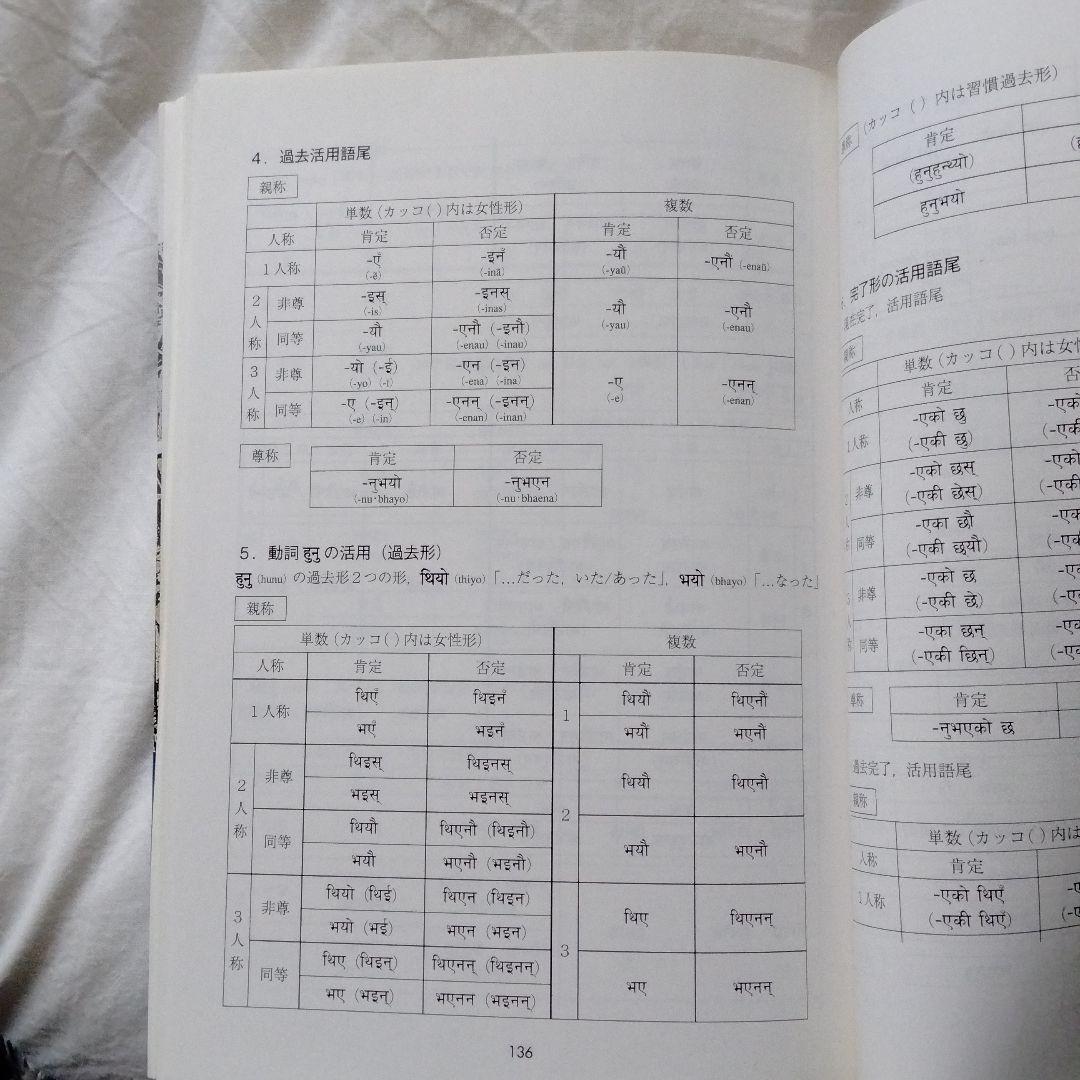 4．過去活用語尾
親称
単数（カッコ( )内は女性形） 複数
人称 肯定 否定 肯定 否定
1人称 -एँ -इनँ -यौं -एनौं (-enaũ)
(-ẽ) (-inã) (-yaũ)
2人称 非尊 -इस् -इनस् -यौ -एनौ
(-is) (-inas) (-yau) (-enau)
同等 -यौ -एनौ (-इनौ)
(-yau) (-enau) (-inau)
3人称 非尊 -यो (-ई) -एन (-इन) -ए -एनन्
(-yo) (-ī) (-ena) (-ina) (-e) (-enan)
同等 -ए (-इन्) -एनन् (-इनन्)
(-e) (-in) (-enan) (-inan)
尊称
肯定 否定
-नुभयो -नुभएन
(-nu・bhayo) (-nu・bhaena)
5．動詞 हुनु の活用（過去形）
हुनु (hunu) の過去形2つの形，थियो (thiyo)「…だった，いた/あった」，भयो (bhayo)「…なった」
親称
単数（カッコ( )内は女性形） 複数
人称 肯定 否定 肯定 否定
1人称 थिएँ थिइनँ 1 थियौं थिएनौं
भएँ भइनँ भयौं भएनौं
2人称 非尊 थिइस् थिइनस् 2 थियौ थिएनौ
भइस् भइनस्
同等 थियौ थिएनौ (थिइनौ) भयौ भएनौ
भयौ भएनौ (भइनौ)
3人称 非尊 थियो (थिई) थिएन (थिइन) 3 थिए थिएनन्
भयो (भई) भएन (भइन)
同等 थिए (थिइन्) थिएनन् (थिइनन्) भए भएनन्
भए (भइन्) भएनन (भइनन्)
136
（カッコ( )内は習慣過去形）
称
肯定
(हुनुहुन्थ्यो)
हुनुभयो
完了形の活用語尾
在完了，活用語尾
親称
単数（カッコ( )内は女性
人称 肯定
1人称 -एको छु
(-एकी छु)
非尊 -एको छस्
(-एकी छेस्)
同等 -एका छौ
(-एकी छ्यौ)
非尊 -एको छ
(-एकी छे)
同等 -एका छन्
(-एकी छिन्)
尊称
肯定
-नुभएको छ
過去完了，活用語尾
親称
単数（カッコ( )内は女性
人称 肯定
1人称 -एको थिएँ
(-एकी थिएँ)